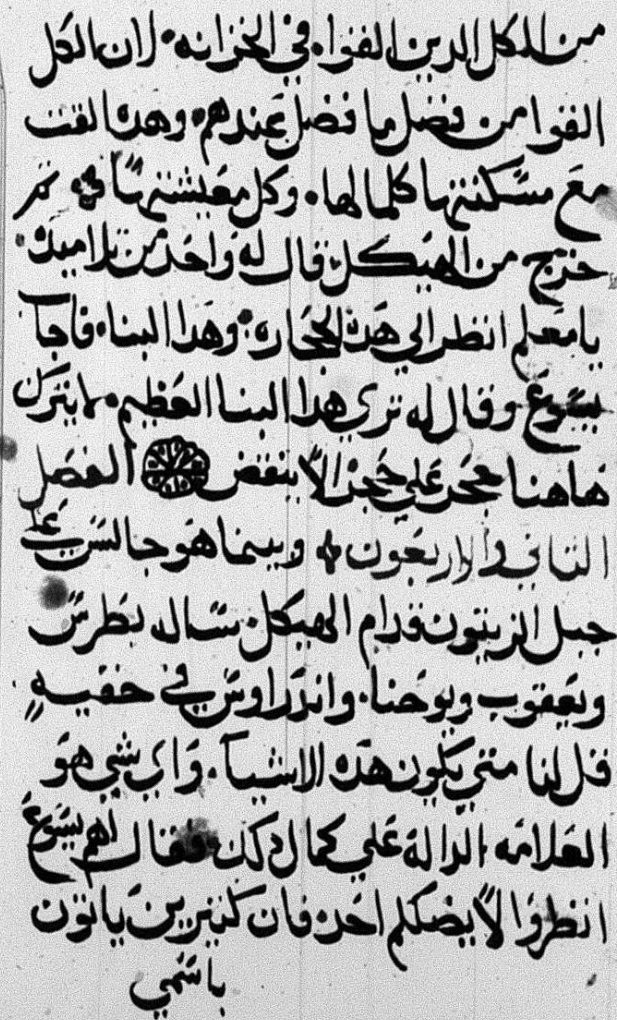 من الكل الدين القوا، في الخزانه، لان الكل
القوا من فضل ما فضل عندهم، وهده القت
مع مسكنتها كلما لها، وكل معيشتها ثم
خرج من الهيكل، قال له واحد من تلاميده
يا معلم انظر الي هده الحجاره، وهدا البناء، فاجاب
يسوع وقال له تري هدا البنا العظيم، لا يترك
هاهنا حجر علي حجر الا ينقض الفصل
التاني والاربعون وبينما هو جالس علي
جبل الزيتون قدام الهيكل، ساله بطرس
ويعقوب ويوحنا، واندراوس في خفيه
قل لنا متي يكون هده الاشيا، واي شي هو
العلامه الدالة علي كمال دلك، فقال لهم يسوع
انظروا لا يضلكم احد، فان كتيرين ياتون
باسمي